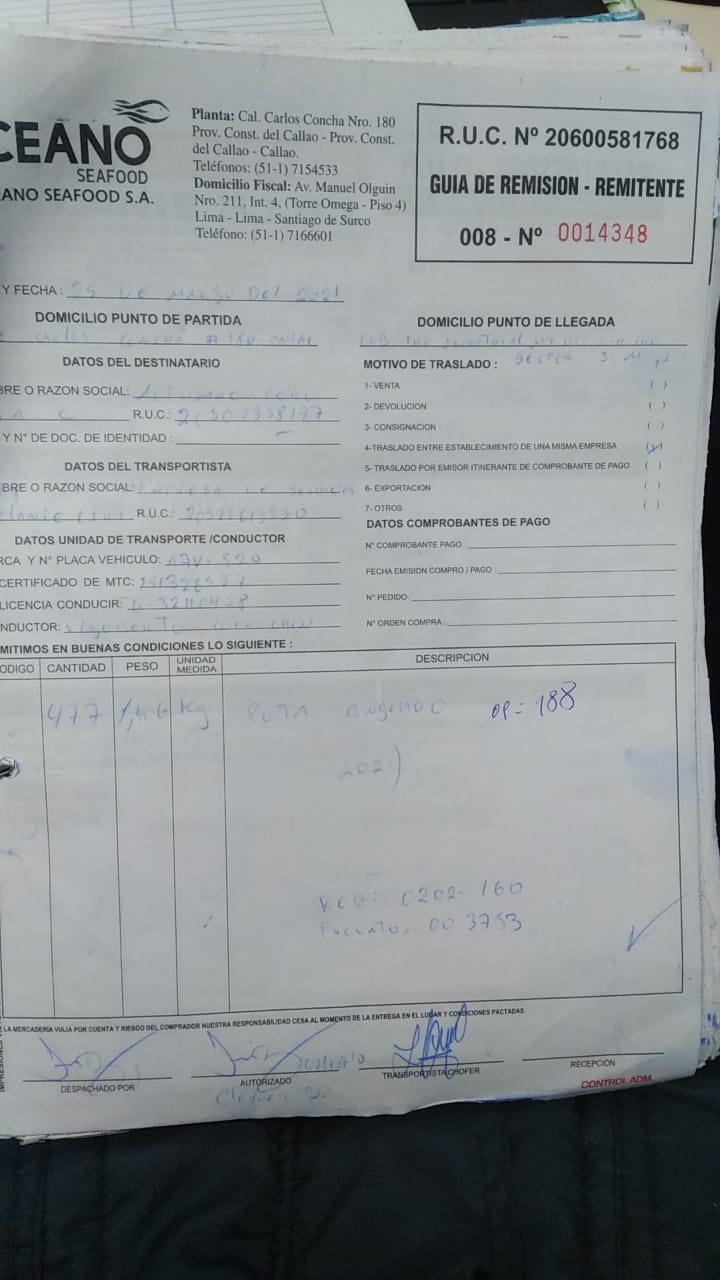 CEANO
SEAFOOD
ANO SEAFOOD S.A.
Planta: Cal. Carlos Concha Nro. 180
Prov. Const. del Callao - Prov. Const.
del Callao - Callao.
Teléfonos: (51-1) 7154533
Domicilio Fiscal: Av. Manuel Olguin
Nro. 211, Int. 4, (Torre Omega - Piso 4)
Lima - Lima - Santiago de Surco
Teléfono: (51-1) 7166601
R.U.C. Nº 20600581768
GUIA DE REMISION - REMITENTE
008 - Nº 0014348
Y FECHA: 25 de Marzo Del 2021
DOMICILIO PUNTO DE PARTIDA
Carlos Concha # 180 Callao
DOMICILIO PUNTO DE LLEGADA
DATOS DEL DESTINATARIO
BRE O RAZON SOCIAL:
R.U.C.: 20502358177
Y Nº DE DOC. DE IDENTIDAD : -
DATOS DEL TRANSPORTISTA
BRE O RAZON SOCIAL: Empresa de Servicios
R.U.C.:
DATOS UNIDAD DE TRANSPORTE /CONDUCTOR
RCA Y Nº PLACA VEHICULO:
CERTIFICADO DE MTC:
LICENCIA CONDUCIR:
NDUCTOR:
MOTIVO DE TRASLADO : Sector
1- VENTA ( )
2- DEVOLUCION ( )
3- CONSIGNACION ( )
4-TRASLADO ENTRE ESTABLECIMIENTO DE UNA MISMA EMPRESA (x)
5- TRASLADO POR EMISOR ITINERANTE DE COMPROBANTE DE PAGO ( )
6- EXPORTACION ( )
7- OTROS ( )
DATOS COMPROBANTES DE PAGO
Nº COMPROBANTE PAGO :
FECHA EMISION COMPRO / PAGO :
Nº PEDIDO:
Nº ORDEN COMPRA:
MITIMOS EN BUENAS CONDICIONES LO SIGUIENTE :
ODIGO CANTIDAD PESO UNIDAD MEDIDA DESCRIPCION
477 Kg POTA Congelado OP = 188
2021)
RCO: 0202-160
Precinto. 003753
LA MERCADERÍA VIAJA POR CUENTA Y RIESGO DEL COMPRADOR NUESTRA RESPONSABILIDAD CESA AL MOMENTO DE LA ENTREGA EN EL LUGAR Y CONDICIONES PACTADAS.
DESPACHADO POR
AUTORIZADO
TRANSPORTISTA CHOFER
RECEPCION
CONTROL ADM.